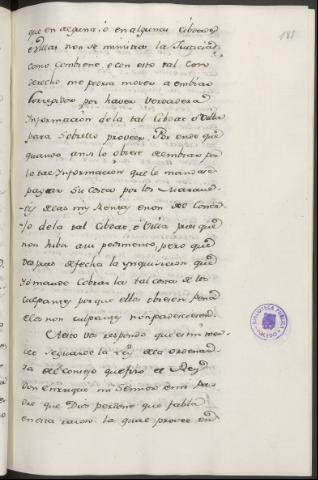 que en alguna, ó en algunas cibdades
ó Villas non se ministra la Justicia
como combiene, ó con esto tal con
derecho me podria mover a embiar
Corregidor por haver verdadera
Informacion de la tal Cibdat ó Villa
para sobrello proveer. Por ende que
quando ansi lo obiere de embiar por
la tal Informacion que le mandase
pagar su costa por los Maraved-
-is de las mis Rentas é non del Conce-
-jo de la tal Cibdat, ó Villa pues que
non hiba a su pedimento, pero que
despues de fecha la ynquisicion que
yo mande cobrar la tal costa de los
culpantes porque ellos obiesen pena
é los non culpantes non padeciesen.
A esto vos respondo que es mi mer-
ced se guarde la Ley de la ordenan-
za del Consejo que fizo el Rey
Don Enrique mi Señor é mi Pa-
dre que Dios perdone que fabla
en esta razon la qual provee en
181
BIBLIOTECA PUBLICA
TOLEDO